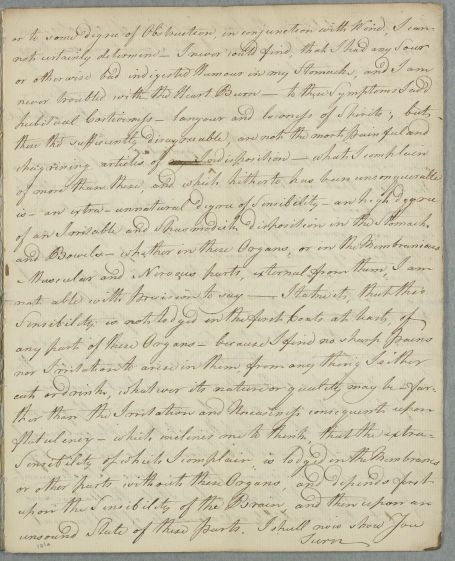 or to some degree of Obstruction, in conjunction with Wind, I can-
not certainly determine – I never could find, that I had any sour
or otherwise bad indigested Humour in my Stomach, and I am
never troubled with the Heart Burn – to these symptoms I add
habitual Costiveness – languor and lowness of Spirits; but
these tho' sufficiently disagreeable, are not the most painful and
distressing articles of indisposition – what I complain
of more than these, and which hitherto has been unconquerable
is – an extra-unnatural degree of Sensibility – an high degree
of an Irritable and Spasmodick disposition in the Stomach
and Bowels – whether in these Organs, or in the Membranious
Muscular and Nervous parts, external from them, I am
not able with precision to say — I take it, that this
Sensibility is not lodged in the first Coats at least, of
any part of these Organs – because I find no sharp Pains
nor Irritation to arise in them from any thing I either
eat or drink, whatever its nature or quality may be – far-
ther than the Irritation and Uneasiness consequent upon
flatulency – which inclines me to think, that the extra-
Sensibility of which I complain, is lodged in the Membranes
or other parts without these Organs, and depends first
upon the Sensibility of the Brain, and then upon an
unsound State of these parts. I shall now show You